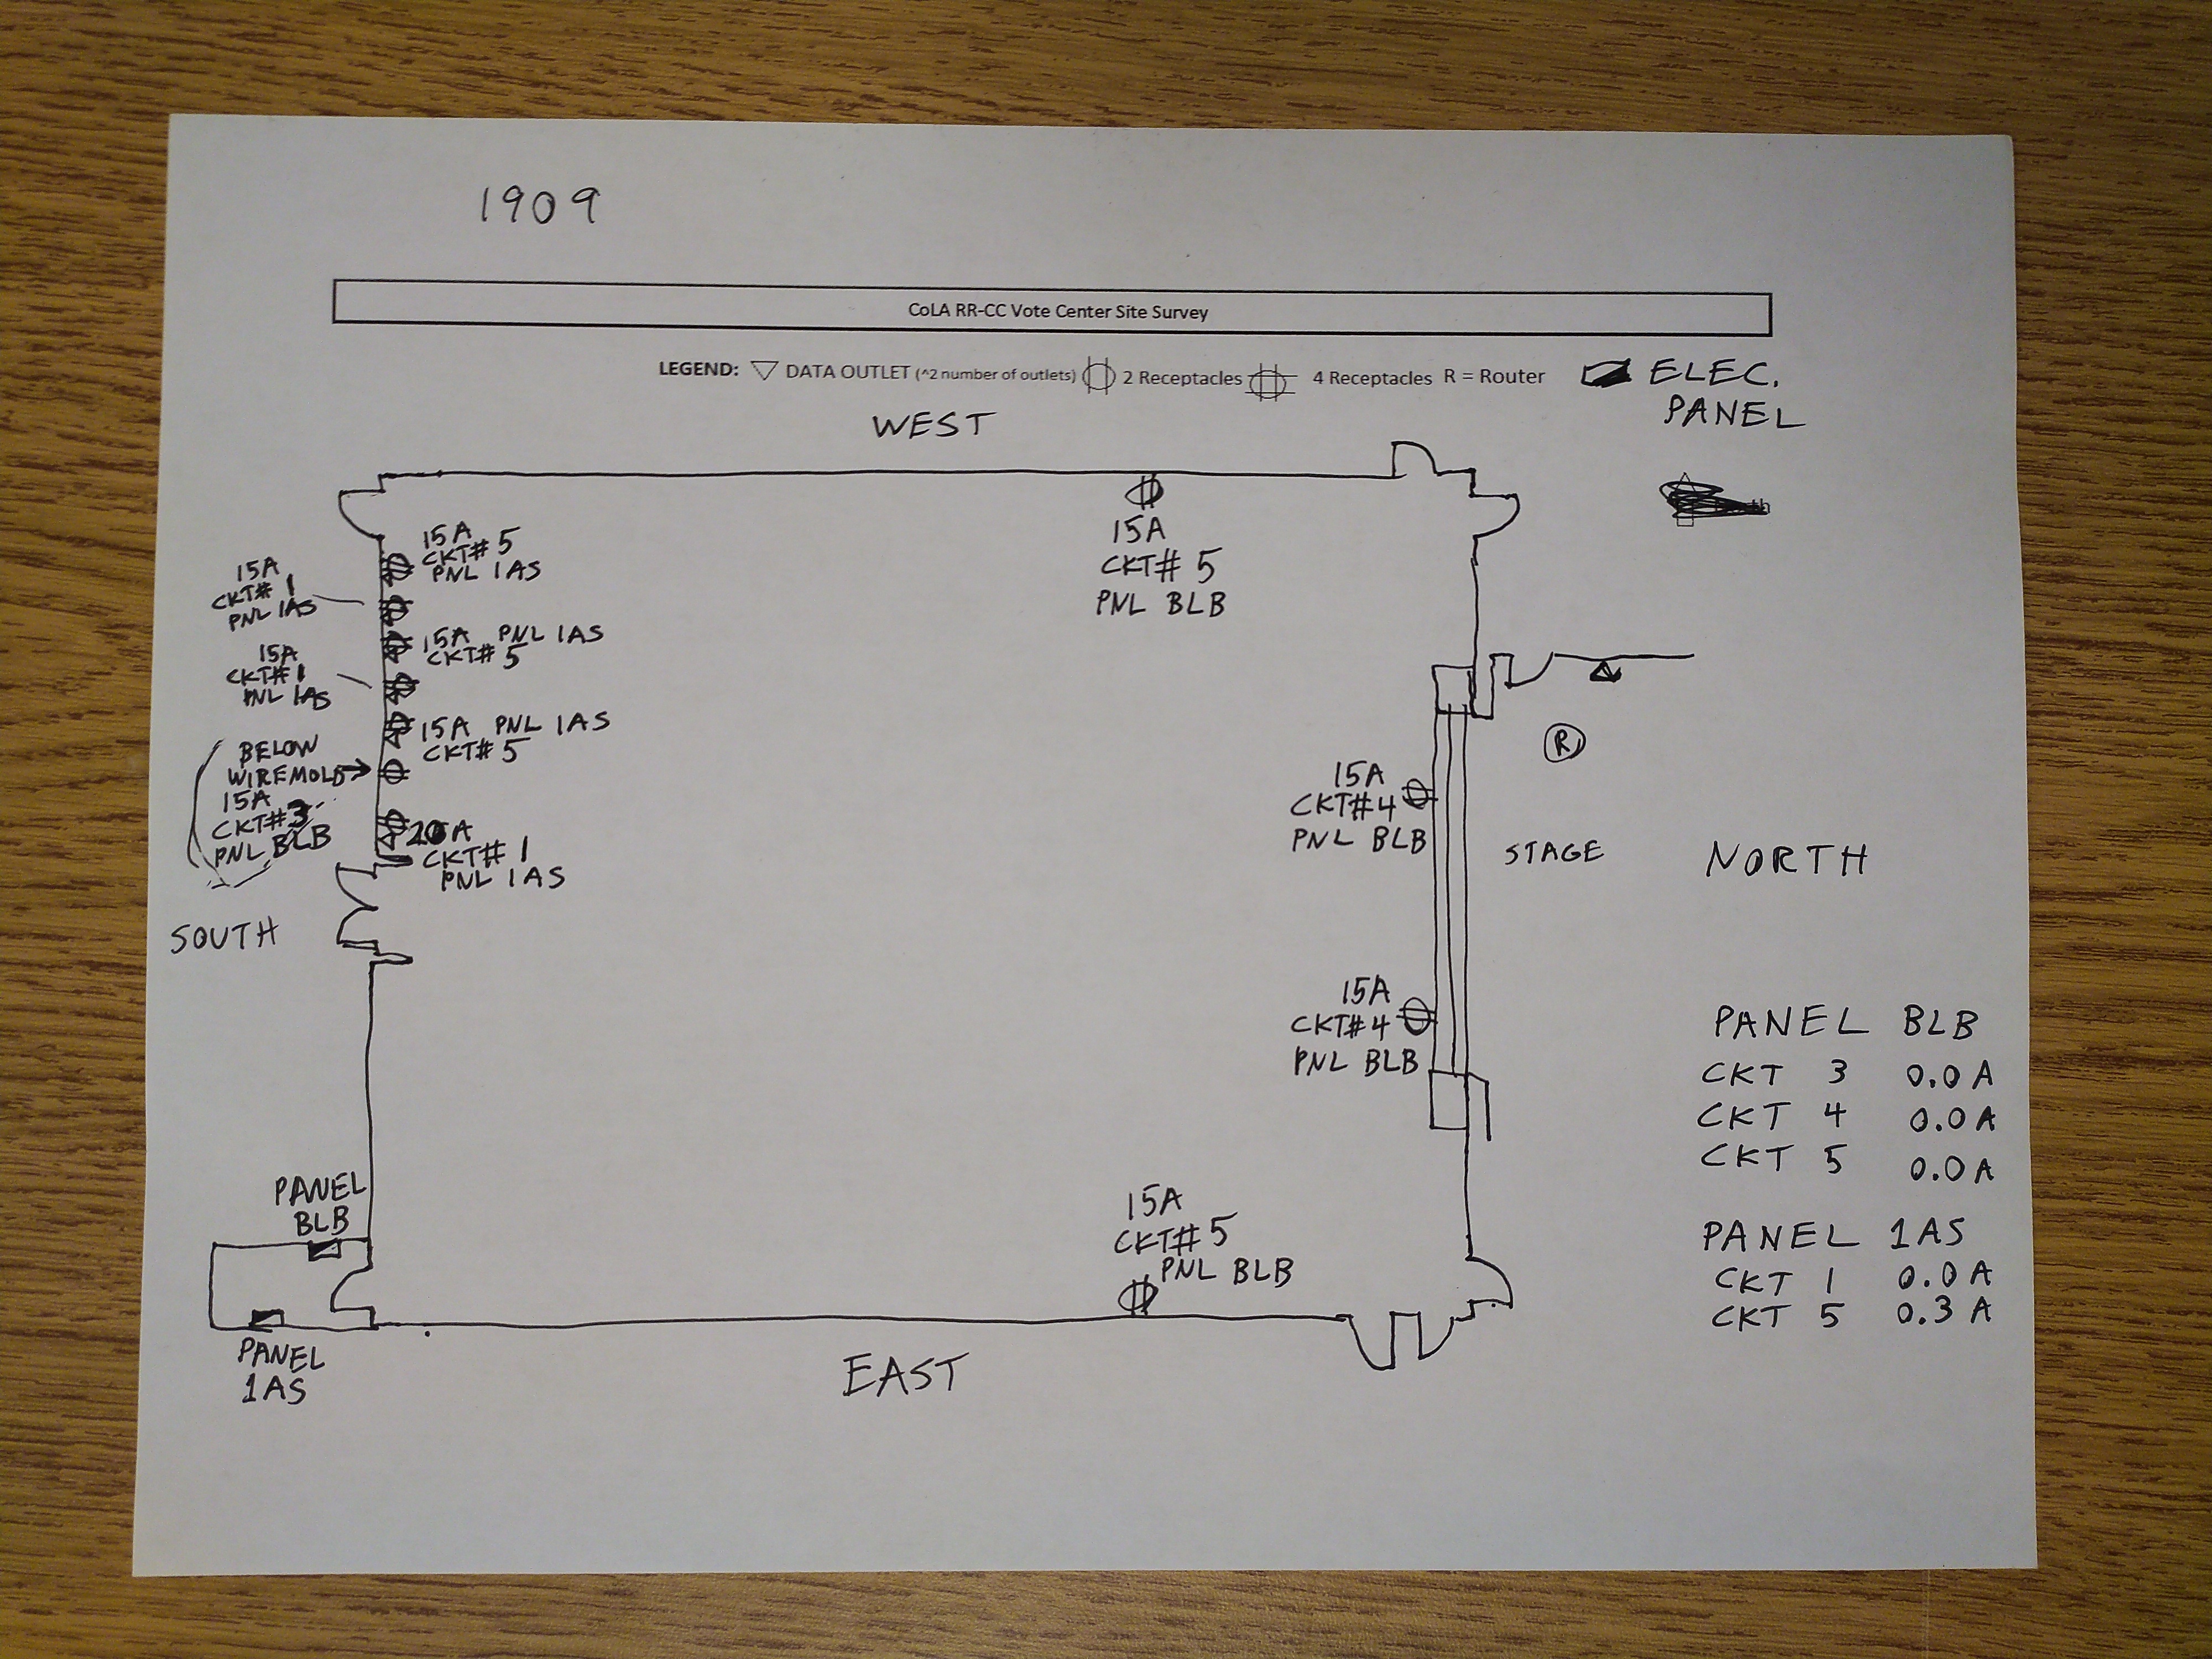 1909
CoLA RR-CC Vote Center Site Survey
LEGEND: DATA OUTLET (^2 number of outlets) 2 Receptacles 4 Receptacles R = Router
ELEC.
PANEL
WEST
15A
CKT# 5
PNL 1AS
15A
CKT# 1
PNL 1AS
15A PNL 1AS
CKT# 5
15A
CKT# 1
PNL 1AS
15A PNL 1AS
CKT# 5
BELOW
WIREMOLD
15A
CKT# 3
PNL BLB
CKT# 1
PNL 1AS
SOUTH
15A
CKT# 5
PNL BLB
R
15A
CKT#4
PNL BLB
STAGE
NORTH
15A
CKT#4
PNL BLB
PANEL BLB
CKT 3 0.0A
CKT 4 0.0A
CKT 5 0.0A
PANEL 1AS
CKT 1 0.0A
CKT 5 0.3A
PANEL
BLB
15A
CKT# 5
PNL BLB
PANEL
1AS
EAST